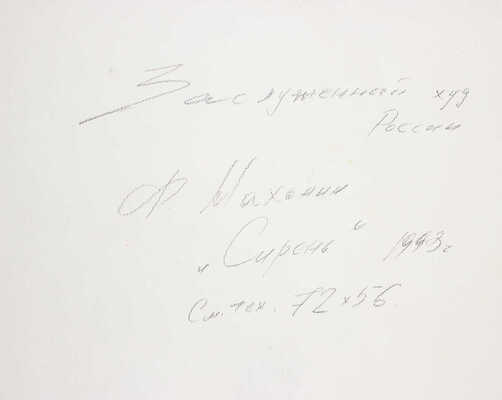 Заслуженный худ
России
Ф. Махонин
„Сирень" 1993г
См. тех. 72х56.